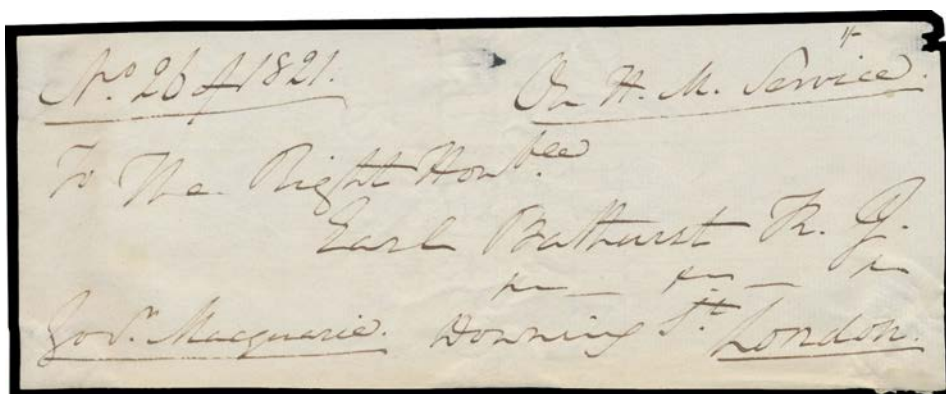 No. 26 of 1821. On H. M. Service.
To The Right Honble.
Earl Bathurst K. G.
Govr. Macquarie. Downing St. London.